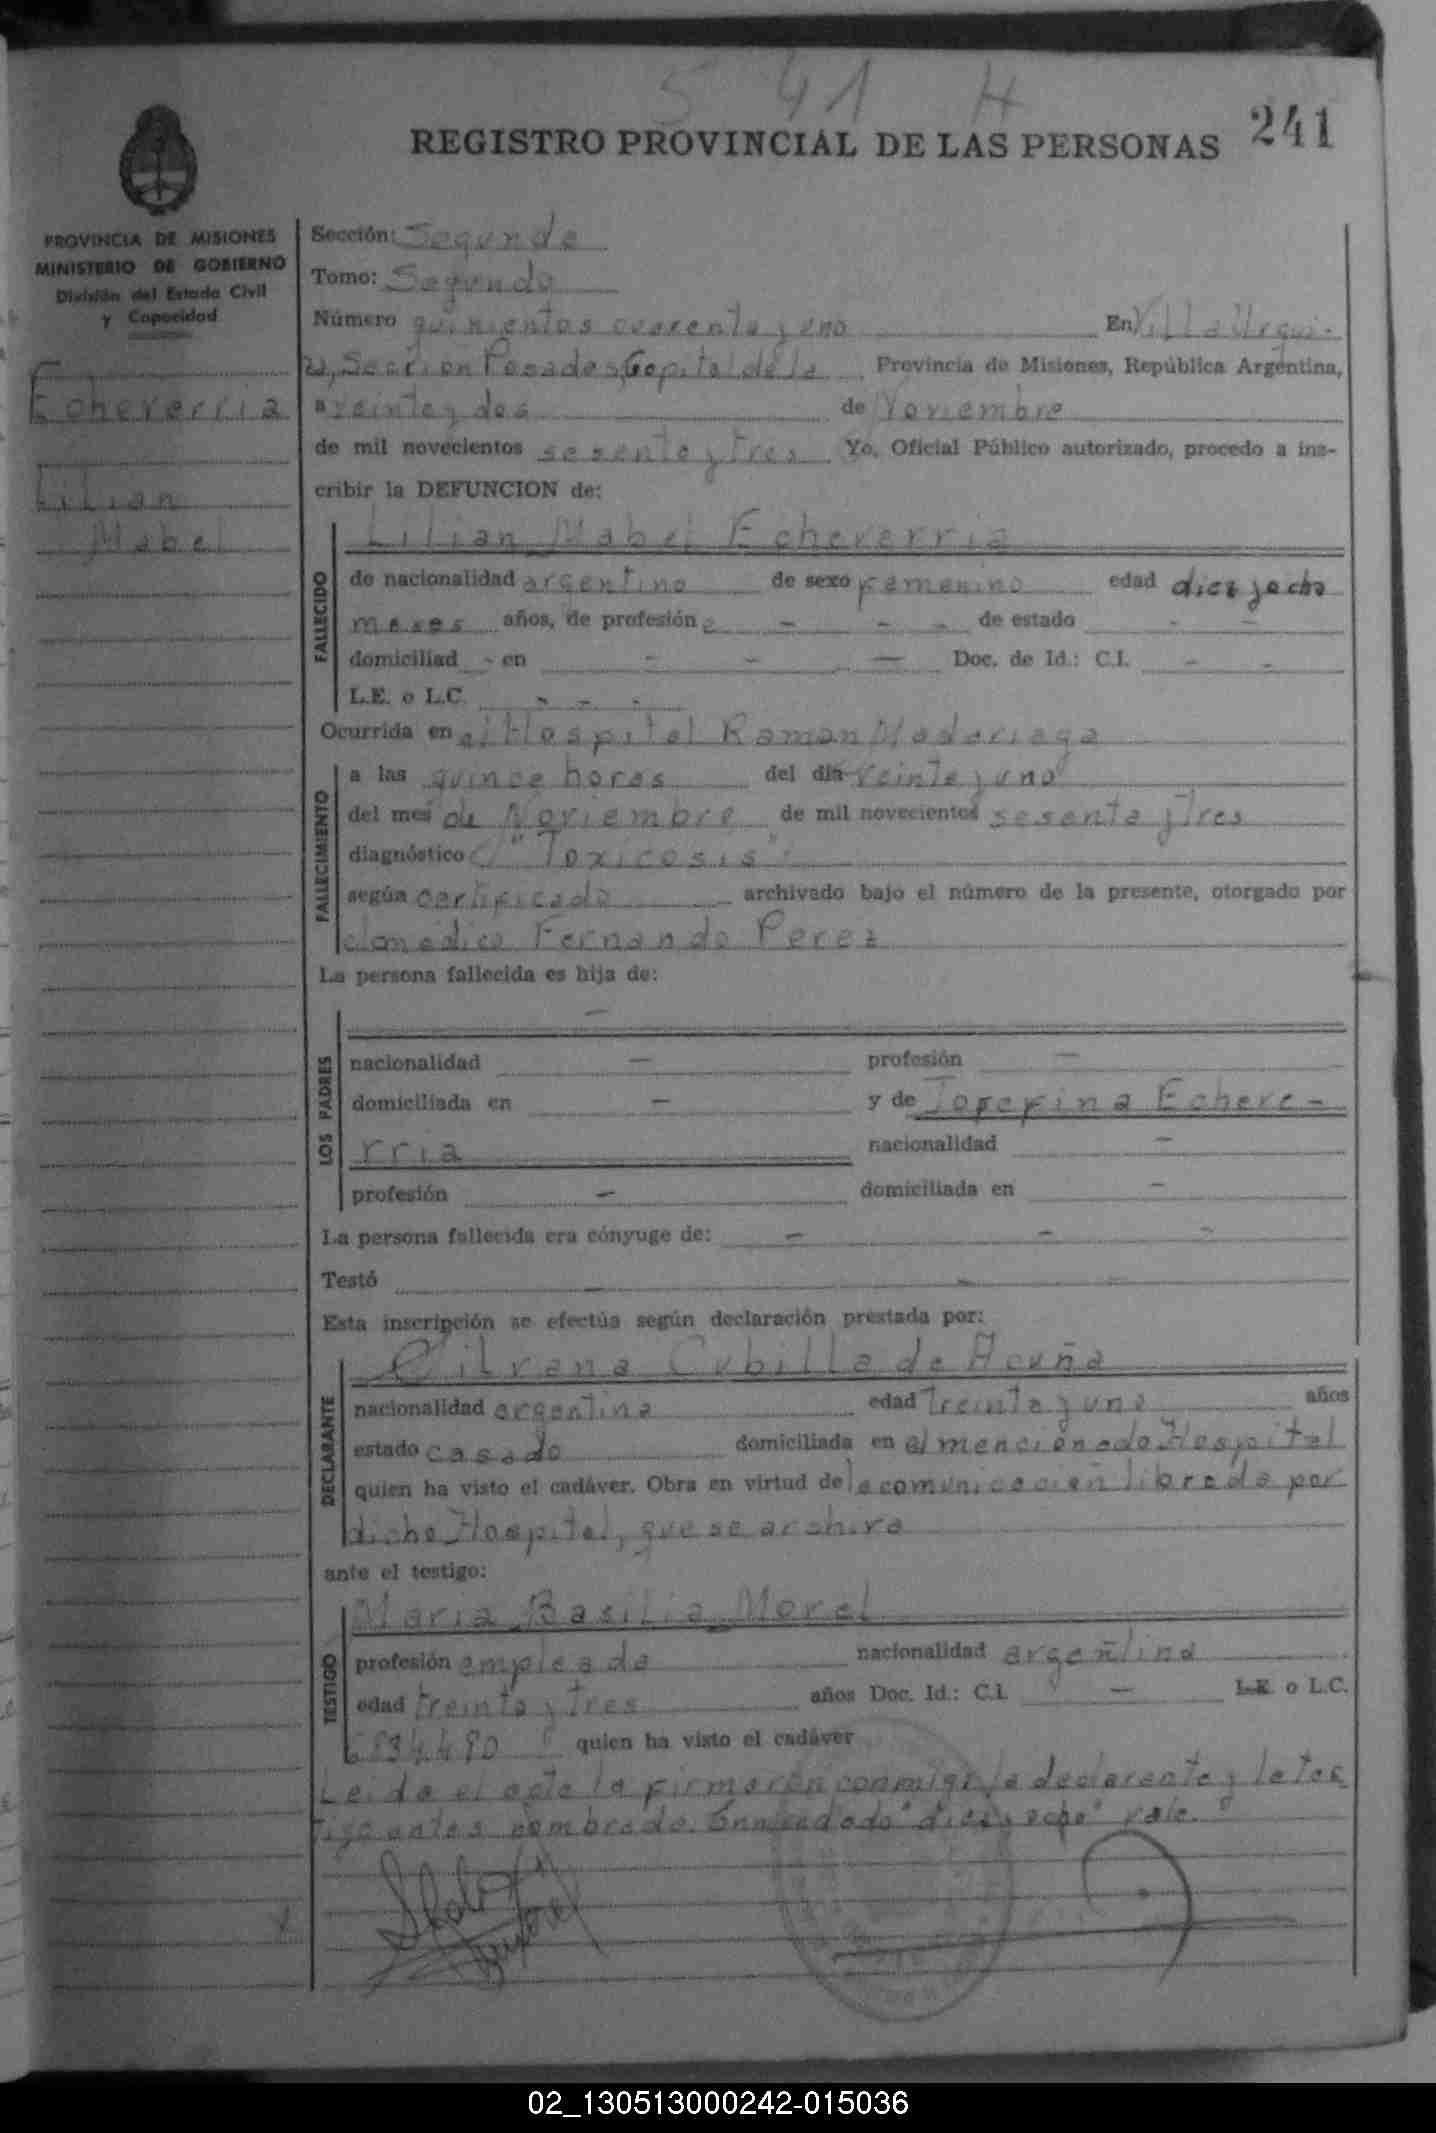 5 41 H
REGISTRO PROVINCIAL DE LAS PERSONAS 241
PROVINCIA DE MISIONES
MINISTERIO DE GOBIERNO
División del Estado Civil
y Capacidad
Echeverria
Lilian
Mabel
Sección: Segunda
Tomo: Segundo
Número quinientos cuarenta y uno En Villa Urqui-
za, Sección Posadas, Capital de la Provincia de Misiones, República Argentina,
a veinte y dos de Noviembre
de mil novecientos sesenta y tres Yo, Oficial Público autorizado, procedo a ins-
cribir la DEFUNCION de:
Lilian Mabel Echeverria
FALLECIDO
de nacionalidad argentina de sexo femenino edad diez y ocho
meses años, de profesión - - - de estado - -
domiciliad - en - - — Doc. de Id.: C.I. - -
L.E. o L.C. - - -
Ocurrida en el Hospital Ramon Madariaga
FALLECIMIENTO
a las quince horas del día veinte y uno
del mes de Noviembre de mil novecientos sesenta y tres
diagnóstico "Toxicosis"
según certificado archivado bajo el número de la presente, otorgado por
el médico Fernando Perez
La persona fallecida es hija de:
—
LOS PADRES
nacionalidad — profesión —
domiciliada en — y de Josefina Echeve-
rria nacionalidad —
profesión — domiciliada en —
La persona fallecida era cónyuge de: — — -
Testó — - -
Esta inscripción se efectúa según declaración prestada por:
Silvana Cubilla de Acuña
DECLARANTE
nacionalidad argentina edad treinta y uno años
estado casada domiciliada en el mencionado Hospital
quien ha visto el cadáver. Obra en virtud de la comunicación librada por
dicho Hospital, que se archiva
ante el testigo:
Maria Basilia Morel
TESTIGO
profesión empleada nacionalidad argentina
edad treinta y tres años Doc. Id.: C.I. — L.E. o L.C.
quien ha visto el cadáver
Leida el acta la firmaron conmigo la declarante y la tes
tigo antes nombrada. Enmendado "diez y ocho" vale.
02_130513000242-015036